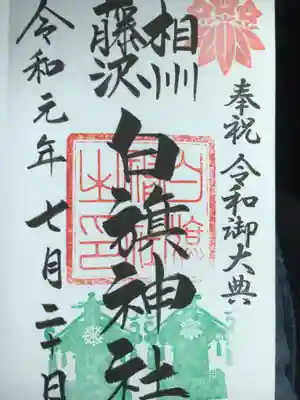 奉祝 令和御大典
相州
藤沢
白旗神社
令和元年 七月二十日